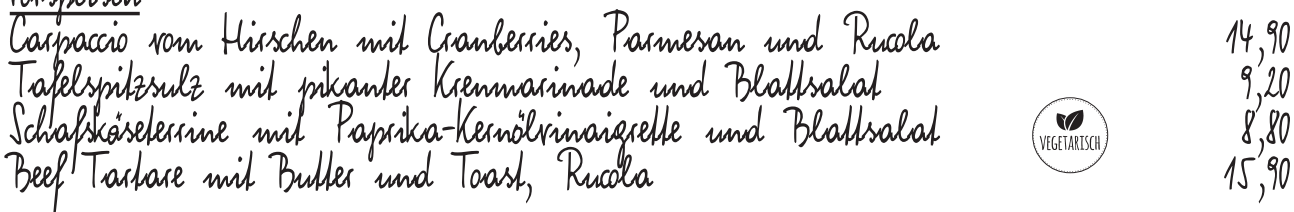 Vorspeisen
Carpaccio vom Hirschen mit Cranberries, Parmesan und Rucola 14,90
Tafelspitzsulz mit pikanter Krenmarinade und Blattsalat 9,20
Schafskäseterrine mit Paprika-Kernölvinaigrette und Blattsalat VEGETARISCH 8,80
Beef Tartare mit Butter und Toast, Rucola 15,90